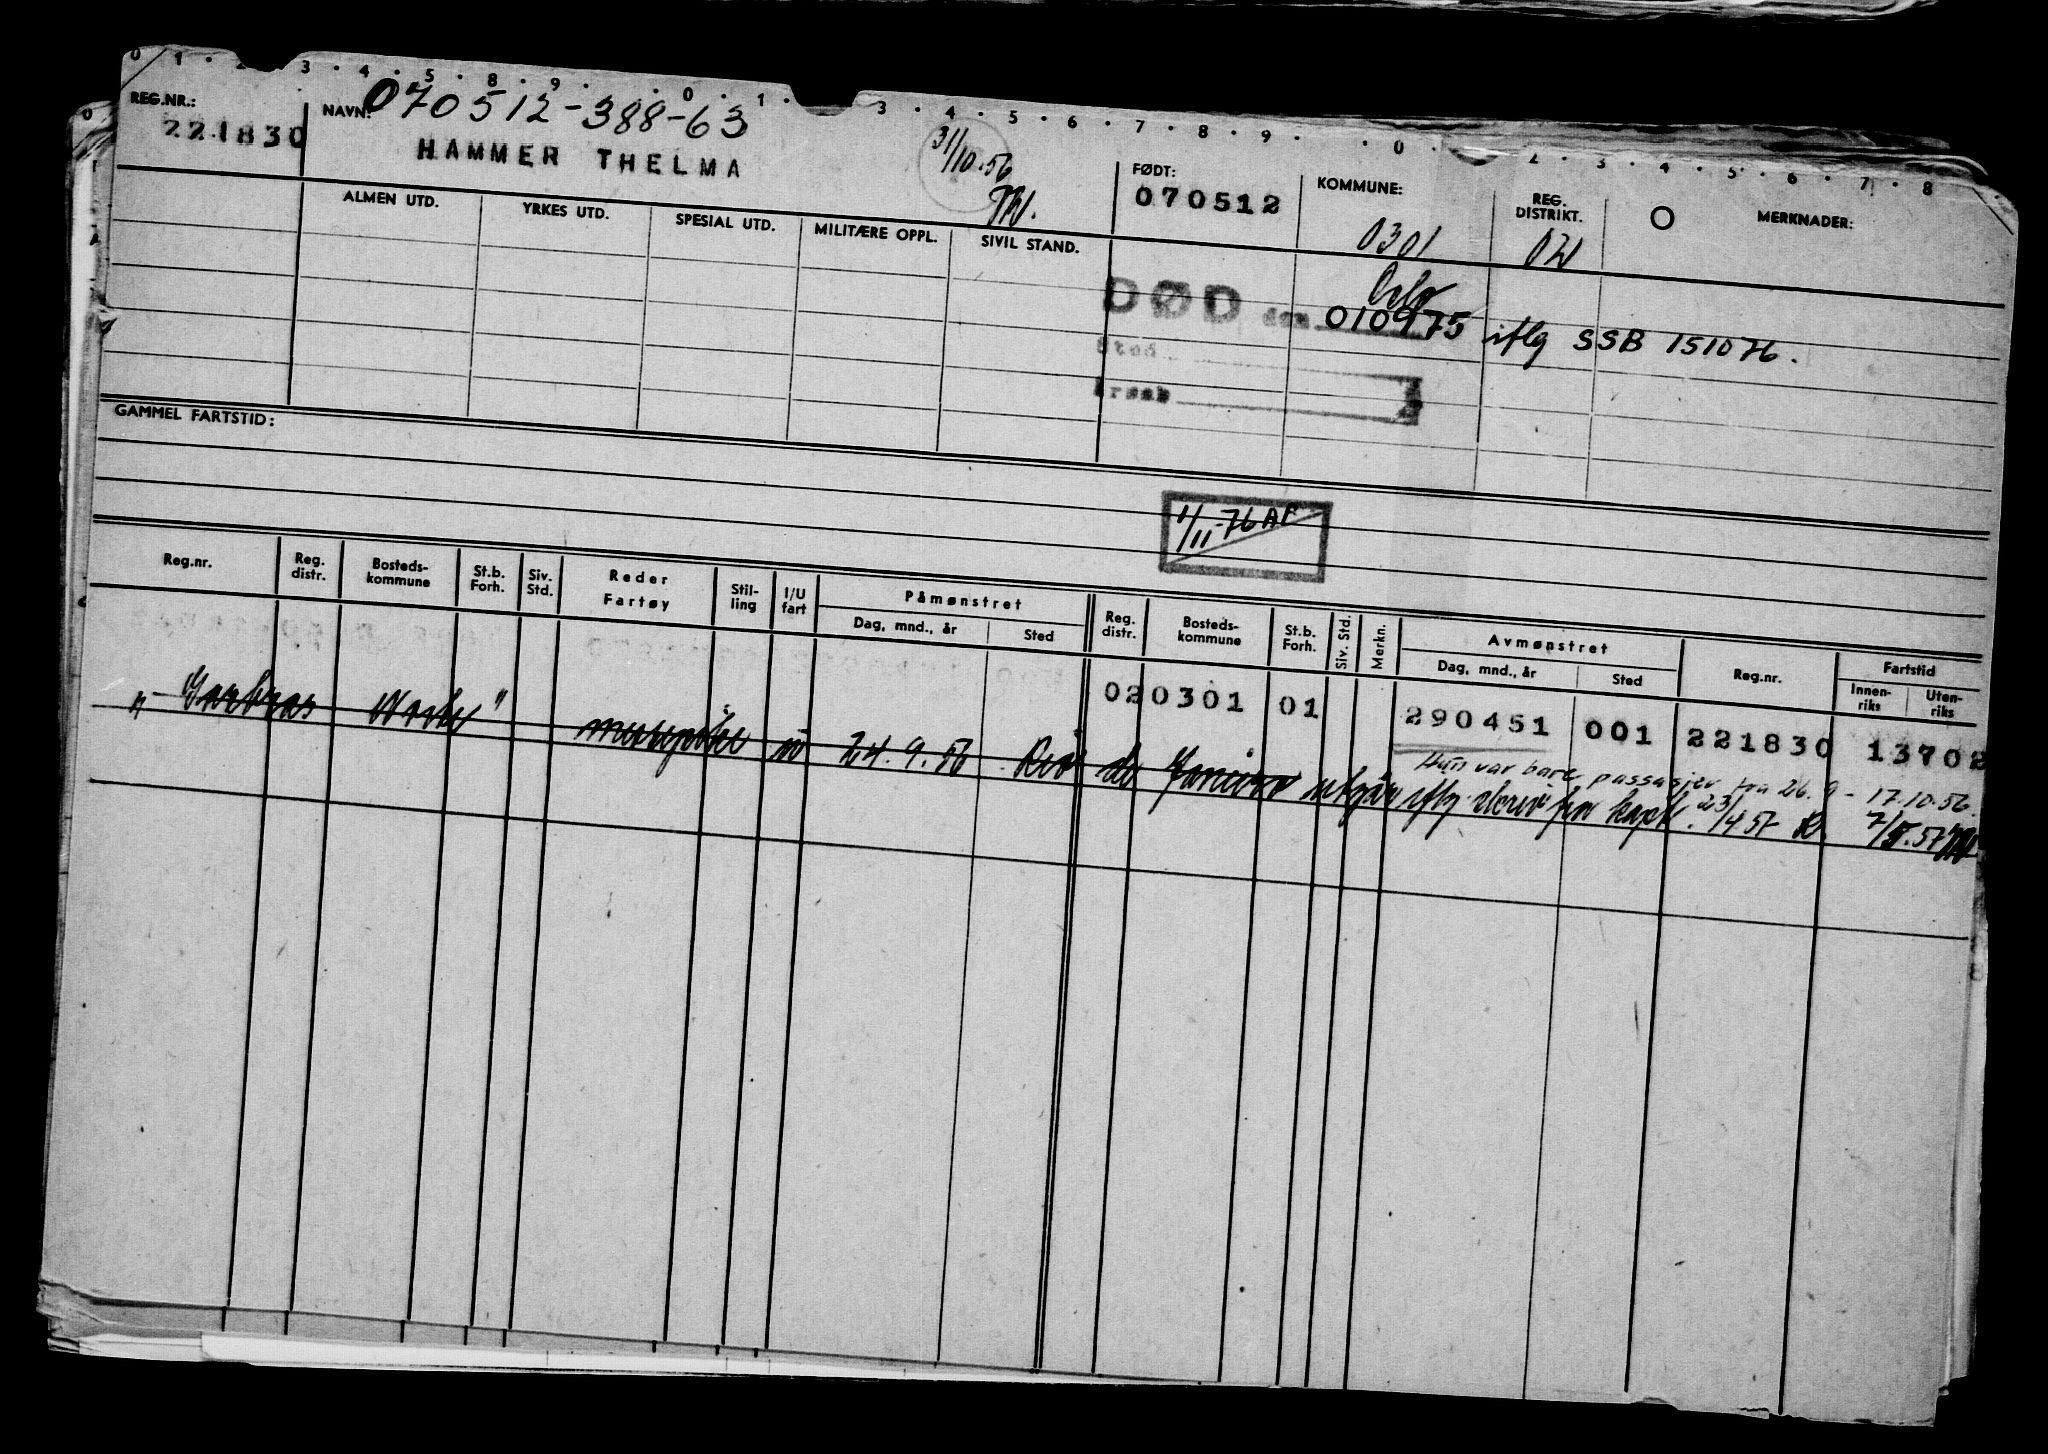 0 1 · 2 3 · 4 · 5 · 8 · 9 · · 0 · 1 · 3 · 4 · 5 · 6 · 7 · 8 · 9 · · 0 · 2 · 3 · 4 · 5 · 6 · 7 · 8
REG.NR.: 221830
NAVN: 070512-388-63
HAMMER THELMA
31/10.56
FØDT: 070512
KOMMUNE: 0301
Oslo
REG. DISTRIKT. 02
MERKNADER:
ALMEN UTD. YRKES UTD. SPESIAL UTD. MILITÆRE OPPL. SIVIL STAND.
DØD den 010975 iflg SSB 151076.
Sted
Årsak
GAMMEL FARTSTID:
1/11-76 AF
Reg.nr. Reg. distr. Bosteds-kommune St.b. Forh. Siv. Std. Reder Fartøy Stil-ling I/U fart Påmønstret Dag, mnd., år Sted Reg. distr. Bosteds-kommune St.b. Forh. Siv. Std. Merkn. Avmønstret Dag, mnd., år Sted Reg.nr. Fartstid Innen-riks Uten-riks
020301 01 290451 001 221830 13702
Hun var bare passasjer fra 26.9 - 17.10.56.
" " messepike u 24.9.56 Rio de Janeiro utgår iflg skriv fra kapt. 23/4 57 7/5.57